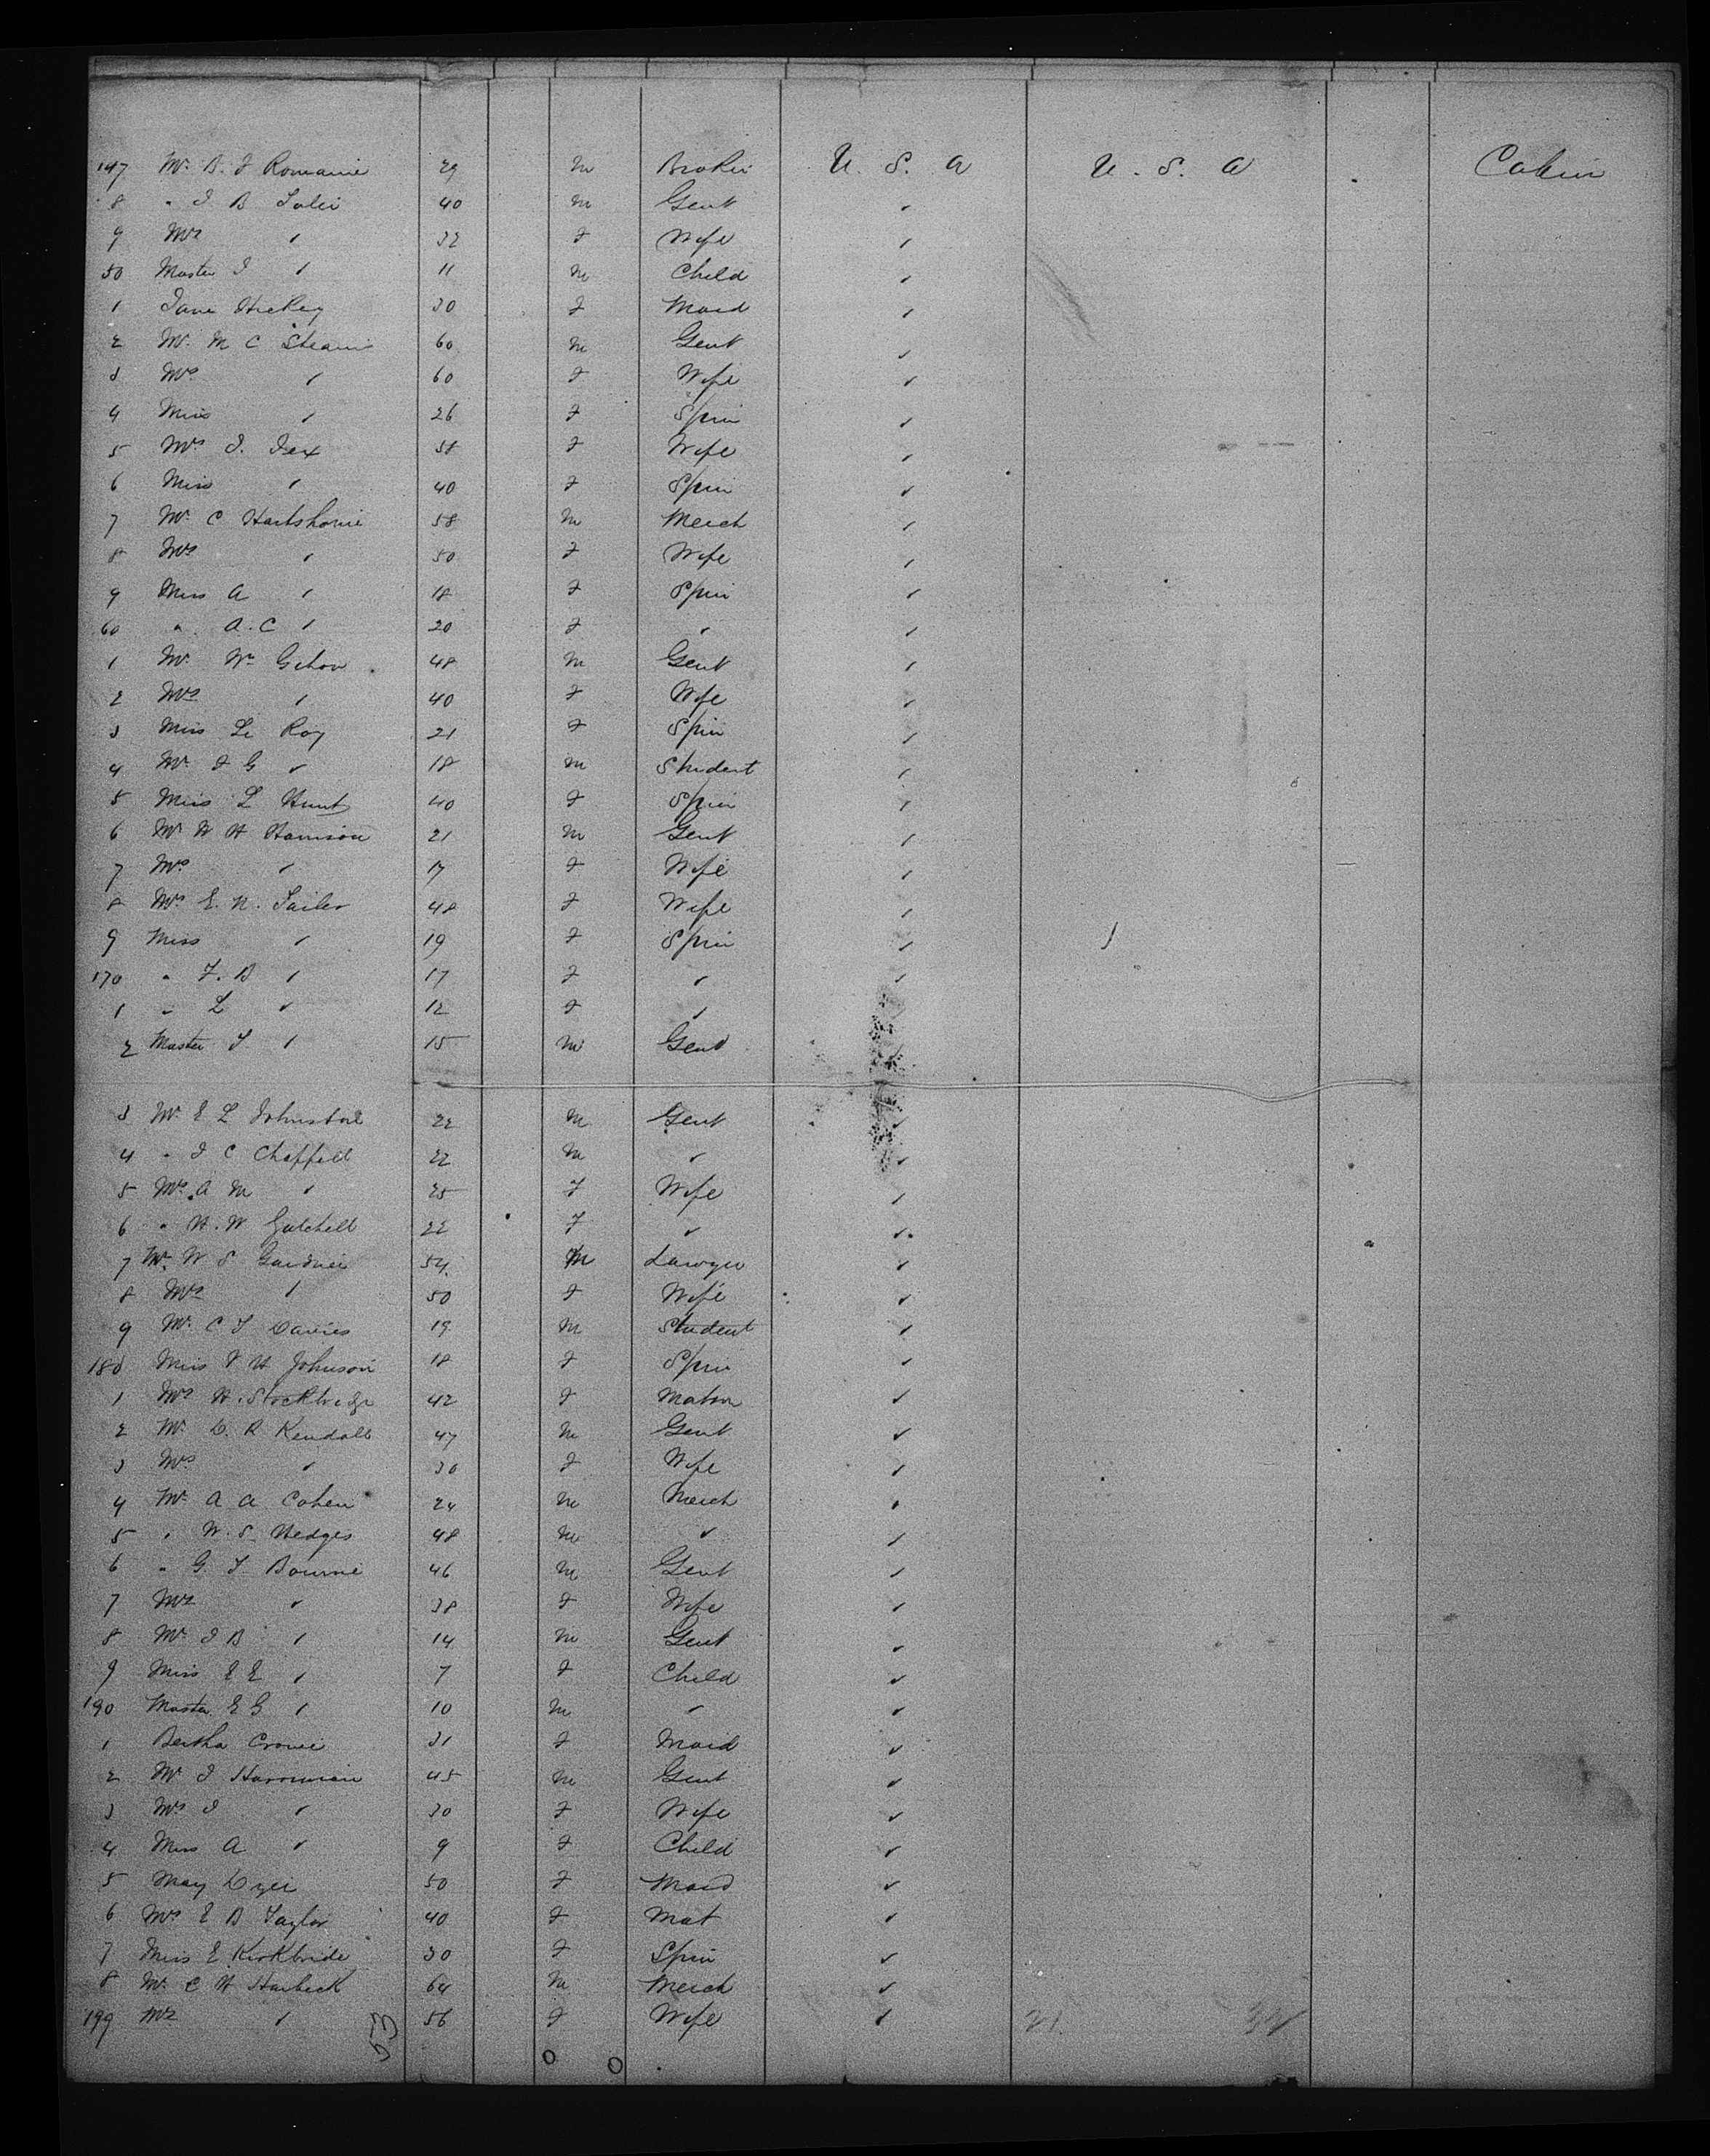 147 Mr. B. F Romaine 29 M Broker U. S. A U. S. A Cabin
8 " I B 40 M Gent ✓
9 Mrs ✓ 32 F Wife ✓
50 Master I ✓ 11 M Child ✓
1 Jane Hickey 30 F Maid ✓
2 Mr. M C Stearns 60 M Gent ✓
3 Mrs ✓ 60 F Wife ✓
4 Miss ✓ 26 F Spin ✓
5 Mrs I. 58 F Wife ✓
6 Miss ✓ 40 F Spin ✓
7 Mr. C Hartshorne 58 M Merch ✓
8 Mrs ✓ 50 F Wife ✓
9 Miss A ✓ 18 F Spin ✓
60 " A. C ✓ 20 F ✓ ✓
1 Mr. Wm Gihon 48 M Gent ✓
2 Mrs ✓ 40 F Wife ✓
3 Miss Le Roy 21 F Spin ✓
4 Mr. I G ✓ 18 M Student ✓
5 Miss L Hunt 40 F Spin ✓
6 Mr W H Harrison 21 M Gent ✓
7 Mrs ✓ 17 F Wife ✓
8 Mrs E. N. Tailer 48 F Wife ✓
9 Miss ✓ 19 F Spin ✓
170 " F. B ✓ 17 F ✓ ✓
1 " L ✓ 12 F ✓
2 Master T ✓ 15 M Gent ✓
3 Mr. E L Johnstone 22 M Gent ✓
4 " I C Chappell 22 M ✓ ✓
5 Mrs. A M ✓ 25 F Wife ✓
6 " H. W Getchell 22 F ✓ ✓
7 Mr. W S Gardner 54 M Lawyer ✓
8 Mrs ✓ 50 F Wife ✓
9 Mr. C T Davies 19 M Student ✓
180 Miss F H Johnson 18 F Spin ✓
1 Mrs H. Stockbridge 42 F Matron ✓
2 Mr. D. R Kendall 47 M Gent ✓
3 Mrs ✓ 30 F Wife ✓
4 Mr. A A Cohen 24 M Merch ✓
5 " W. S Hedges 48 M ✓ ✓
6 " G T Bourne 46 M Gent ✓
7 Mrs ✓ 38 F Wife ✓
8 Mr. I B ✓ 14 M Gent ✓
9 Miss E E ✓ 7 F Child ✓
190 Master E G ✓ 10 M ✓ ✓
1 Bertha Crowe 31 F Maid ✓
2 Mr I Harriman 45 M Gent ✓
3 Mrs I ✓ 30 F Wife ✓
4 Miss A ✓ 9 F Child ✓
5 May Dyer 50 F Maid ✓
6 Mrs E B Taylor 40 F Mat ✓
7 Miss E Kirkbride 30 F Spin ✓
8 Mr. C H Harbeck 64 M Merch ✓
199 Mrs ✓ 56 F Wife ✓ 21 32
53
0 0